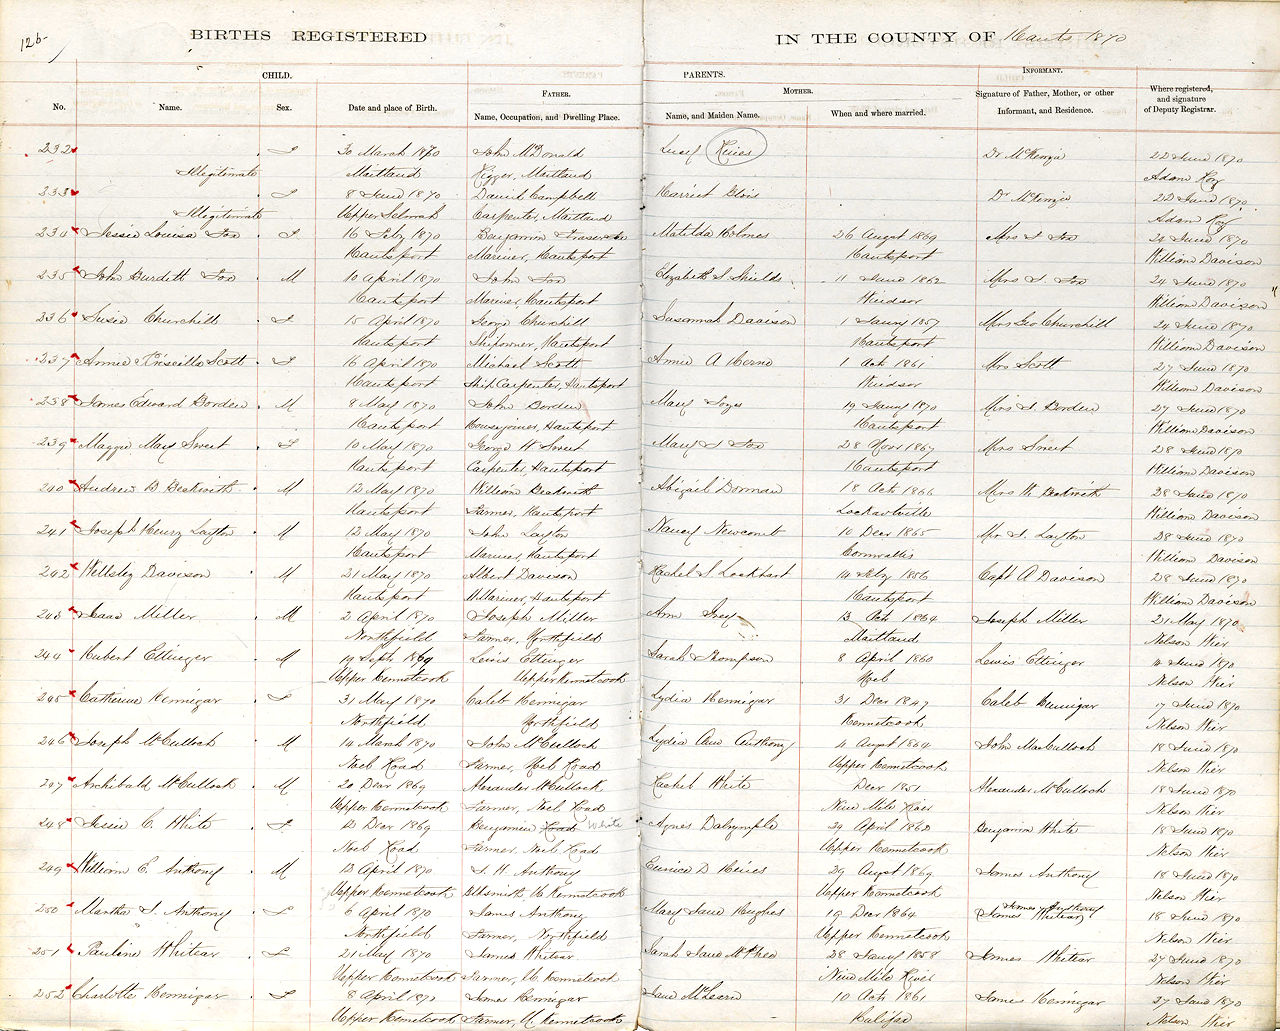 126
BIRTHS REGISTERED IN THE COUNTY OF Hants 1870
CHILD. PARENTS. INFORMANT.
FATHER. MOTHER.
No. Name. Sex. Date and place of Birth. Name, Occupation, and Dwelling Place. Name, and Maiden Name. When and where married. Signature of Father, Mother, or other Informant, and Residence. Where registered, and signature of Deputy Registrar.
232 F 30 March 1870 John McDonald Lucy Hines Dr McKenzie 22 June 1870
Illegitimate Maitland Rigger, Maitland Adam Roy
233 F 8 June 1870 Daniel Campbell Harriet Dr McKenzie 22 June 1870
Illegitimate Upper Selmah Carpenter, Maitland Adam Roy
234 Jessie Louisa Fox F 16 Feby 1870 Benjamin Fraser Fox Matilda Holmes 26 August 1869 Mrs Fox 24 June 1870
Hantsport Mariner, Hantsport Hantsport William Davison
235 John Burdett Fox M 10 April 1870 John Fox Elizabeth S Shields 11 June 1862 Mrs J. Fox 24 June 1870
Hantsport Mariner, Hantsport Windsor William Davison "
236 Susie Churchill F 15 April 1870 George Churchill Susannah Davison 1 Jany 1857 Mrs Geo Churchill 24 June 1870
Hantsport Shipowner, Hantsport Hantsport William Davison
237 Annie Priscilla Scott F 16 April 1870 Michael Scott Annie A 1 Oct 1861 Mrs Scott 27 June 1870
Hantsport Ship Carpenter, Hantsport Windsor William Davison
238 James Edward Borden M 8 May 1870 John Borden Mary 19 Jany 1870 Mrs J. Borden 27 June 1870
Hantsport Housejoiner, Hantsport Hantsport William Davison
239 Maggie May Sweet F 10 May 1870 George W Sweet Mary Fox 28 Novr 1867 Mrs Sweet 28 June 1870
Hantsport Carpenter, Hantsport Hantsport William Davison
240 Andrew B Beckwith M 12 May 1870 William Beckwith Abigail Dorman 18 Oct 1866 Mrs W. Beckwith 28 June 1870
Hantsport Farmer, Hantsport Lockartville William Davison
241 Joseph Henry Layton M 12 May 1870 John Layton Nancy Newcomb 10 Decr 1865 Mr J. Layton 28 June 1870
Hantsport Mariner, Hantsport Cornwallis William Davison
242 Wellsley Davison M 21 May 1870 Albert Davison Rachel S Lockhart 14 Feby 1856 Capt A Davison 28 June 1870
Hantsport Mariner, Hantsport Hantsport William Davison
243 Isaac Miller M 2 April 1870 Joseph Miller Ann Grey 13 Oct 1864 Joseph Miller 21 May 1870
Northfield Farmer, Northfield Maitland Nelson Wier
244 Hubert Ettinger M 19 Septr 1869 Lewis Ettinger Sarah Thompson 8 April 1860 Lewis Ettinger 14 June 1870
Upper Kennetcook Upper Kennetcook Noel Nelson Wier
245 Catherine Hennigar F 31 May 1870 Caleb Hennigar Lydia Hennigar 31 Decr 1847 Caleb Hennigar 17 June 1870
Northfield Northfield Kennetcook Nelson Wier
246 Joseph McCulloch M 14 March 1870 John McCulloch Lydia Ann Anthony 4 August 1864 John MacCulloch 18 June 1870
Noel Road Farmer, Noel Road Upper Kennetcook Nelson Wier
247 Archibald McCulloch M 20 Decr 1869 Alexander McCullock Rachel White Decr 1851 Alexander McCulloch 18 June 1870
Upper Kennetcook Farmer, Noel Road Nine Mile River Nelson Wier
248 Jessie C. White F 13 Decr 1869 Benjamin Road White Agnes Dalrymple 29 April 1860 Benjamin White 18 June 1870
Noel Road Farmer, Noel Road Upper Kennetcook Nelson Wier
249 William E. Anthony M 13 April 1870 J. H. Anthony Eunice D Hines 29 August 1869 James Anthony 18 June 1870
Upper Kennetcook Blksmith, U. Kennetcook Upper Kennetcook Nelson Wier
250 Martha J. Anthony F 6 April 1870 James Anthony Mary Jane Hughes 19 Decr 1864 James Anthony James Whitear 18 June 1870
Northfield Farmer, Northfield Upper Kennetcook Nelson Wier
251 Pauline Whitear F 21 May 1870 James Whitear Sarah Jane McPhee 28 Jany 1858 James Whitear 27 June 1870
Upper Kennetcook Farmer, U. Kennetcook Nine Mile River Nelson Wier
252 Charlotte Hennigar F 8 April 1870 James Hennigar Jane McLearn 10 Oct 1861 James Hennigar 27 June 1870
Upper Kennetcook Farmer, U. Kennetcook Halifax Nelson Wier